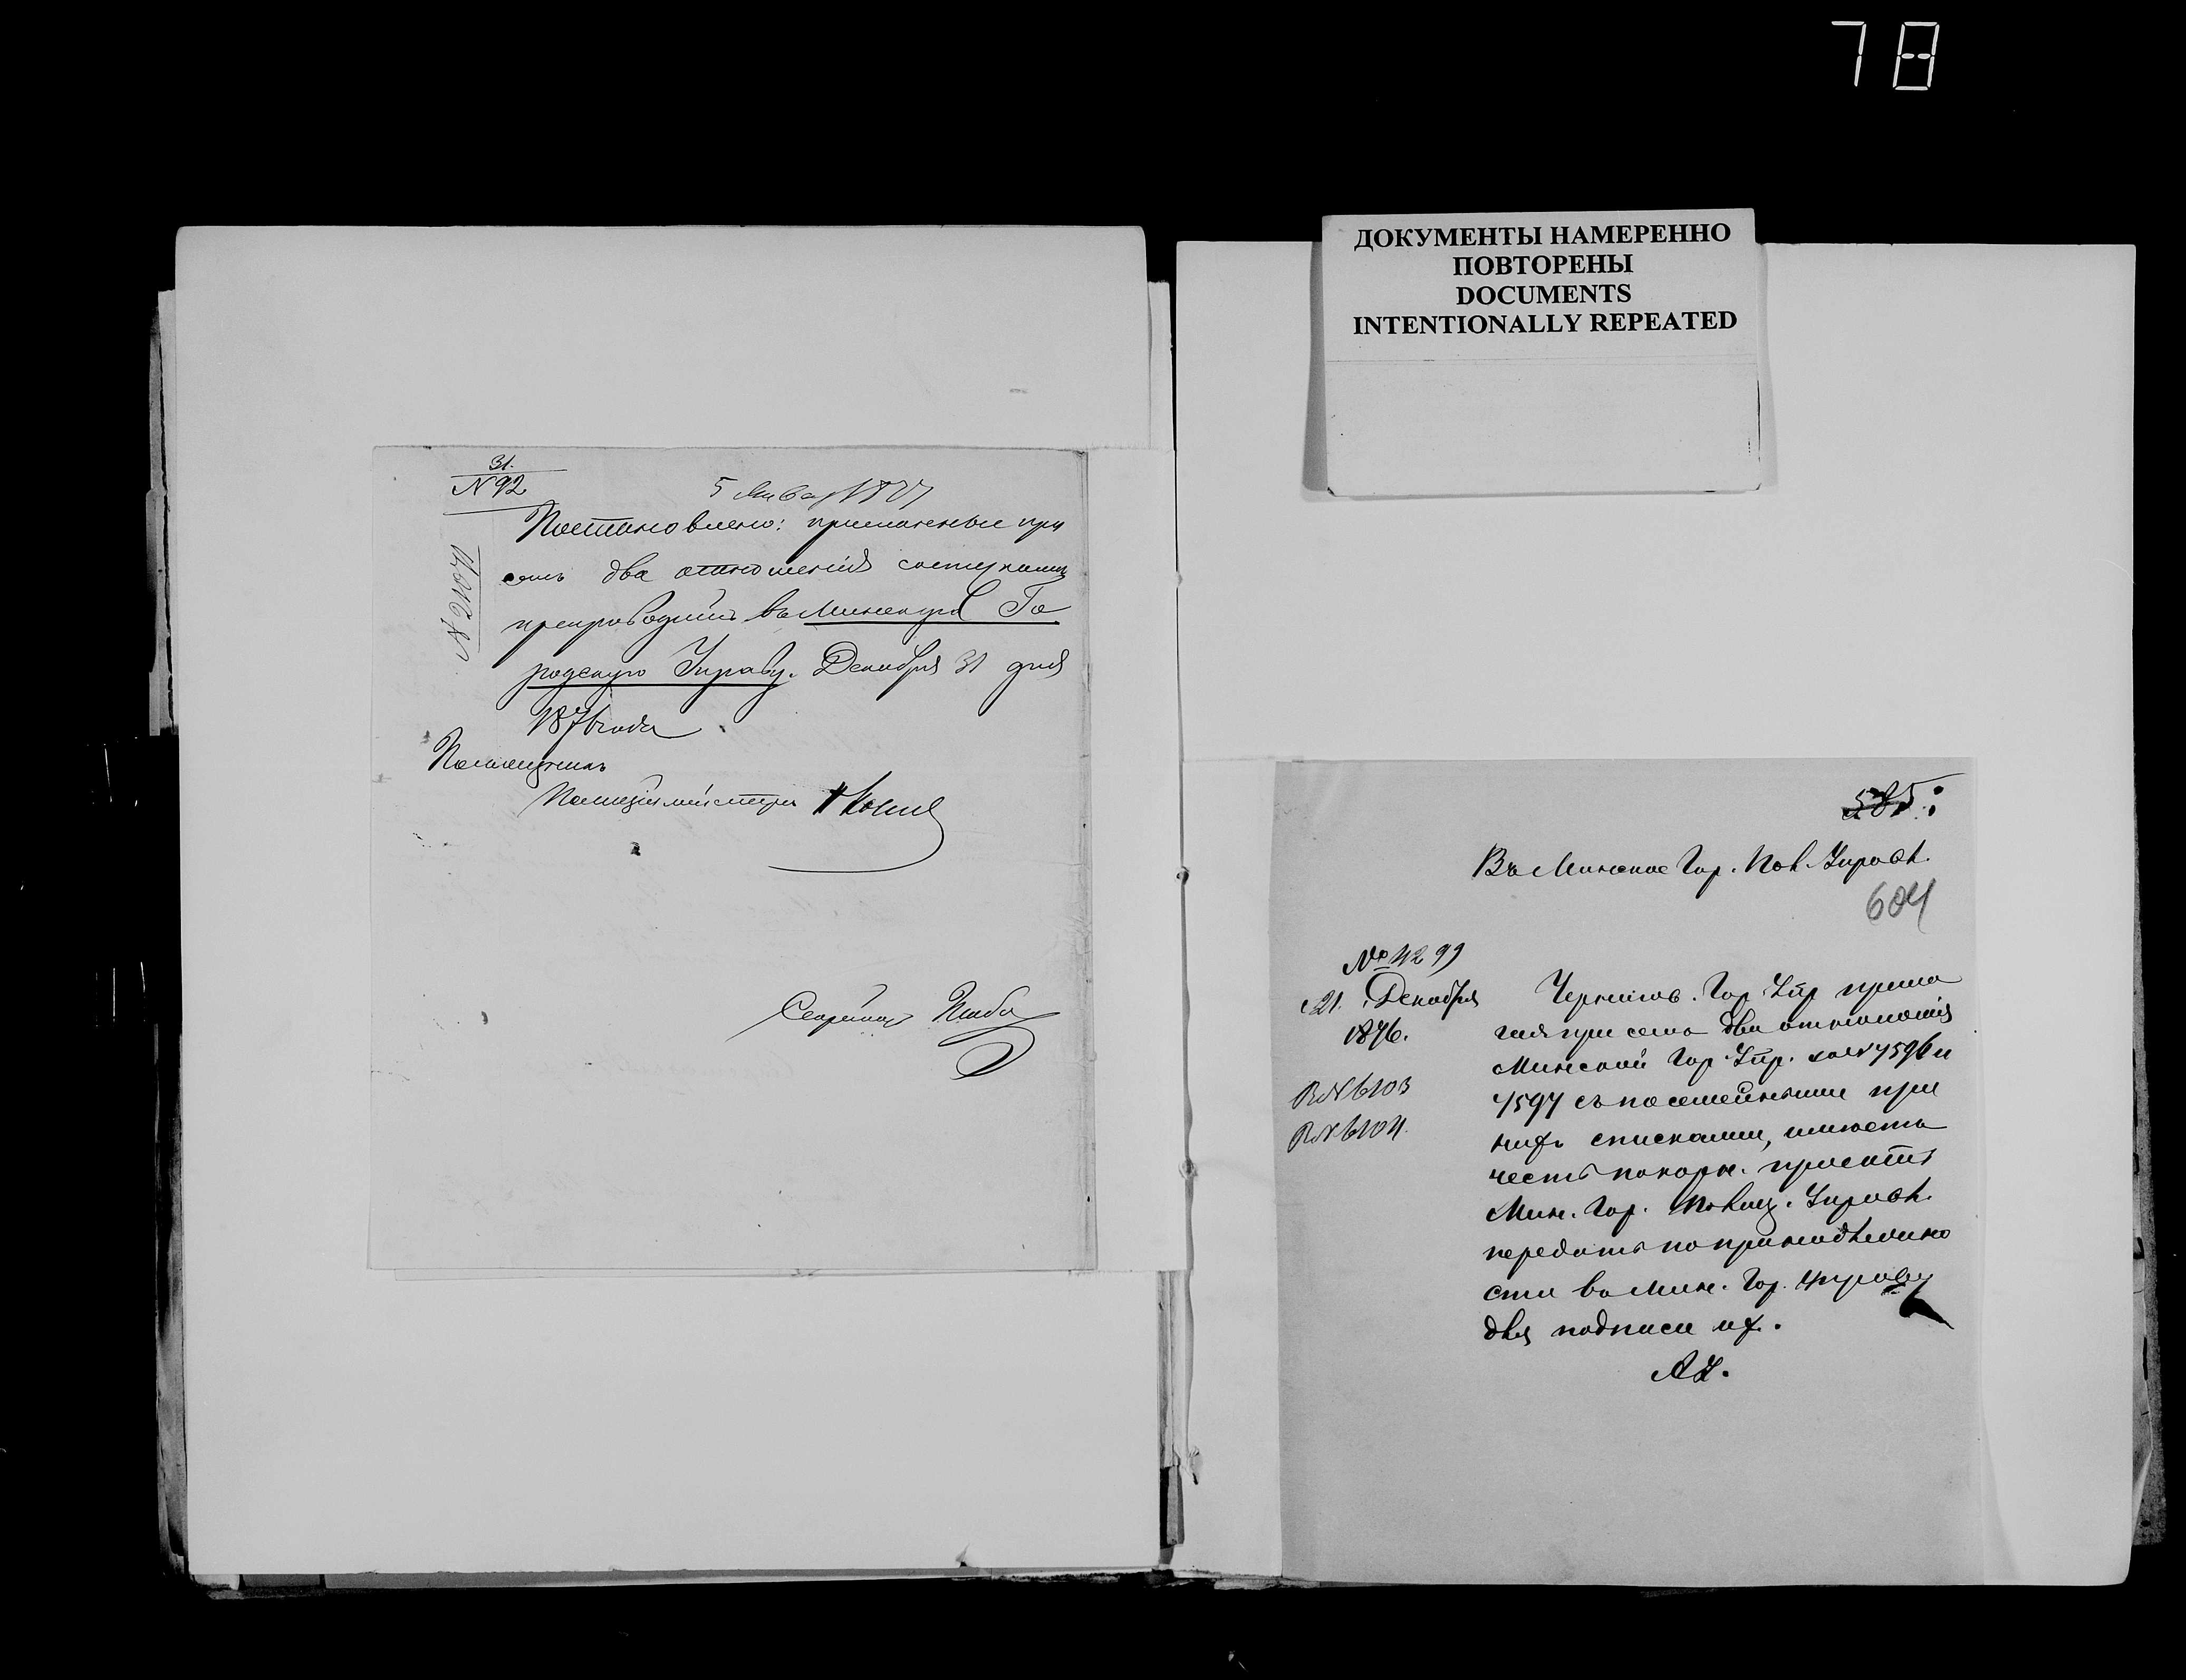 78
31.
N 92
5 Января 1877
Постановлено: приложенные при
семъ два отношенія
препроводить въ Минскую Го
родскую Управу. Декабря 31 дня
1876 года
Помощникъ
Полиціймейстера
Секретарь
ДОКУМЕНТЫ НАМЕРЕННО
ПОВТОРЕНЫ
DOCUMENTS
INTENTIONALLY REPEATED
385
Въ Минское Гор. Пол. Управл.
604
№ 4299
21. Декабря
1876.
N 6103
N 6104.
Чернигов. Гор. Упр. прила
гая при семъ два отношенія
Минской Гор. Упр. за N 4596 и
4597 съ посемейными при
нихъ списками, имѣетъ
честь покорн. просить
Мин. Гор. Полиц. Управл.
передать по принадлежно
сти въ Мин. Гор. Управу
для подписи их.